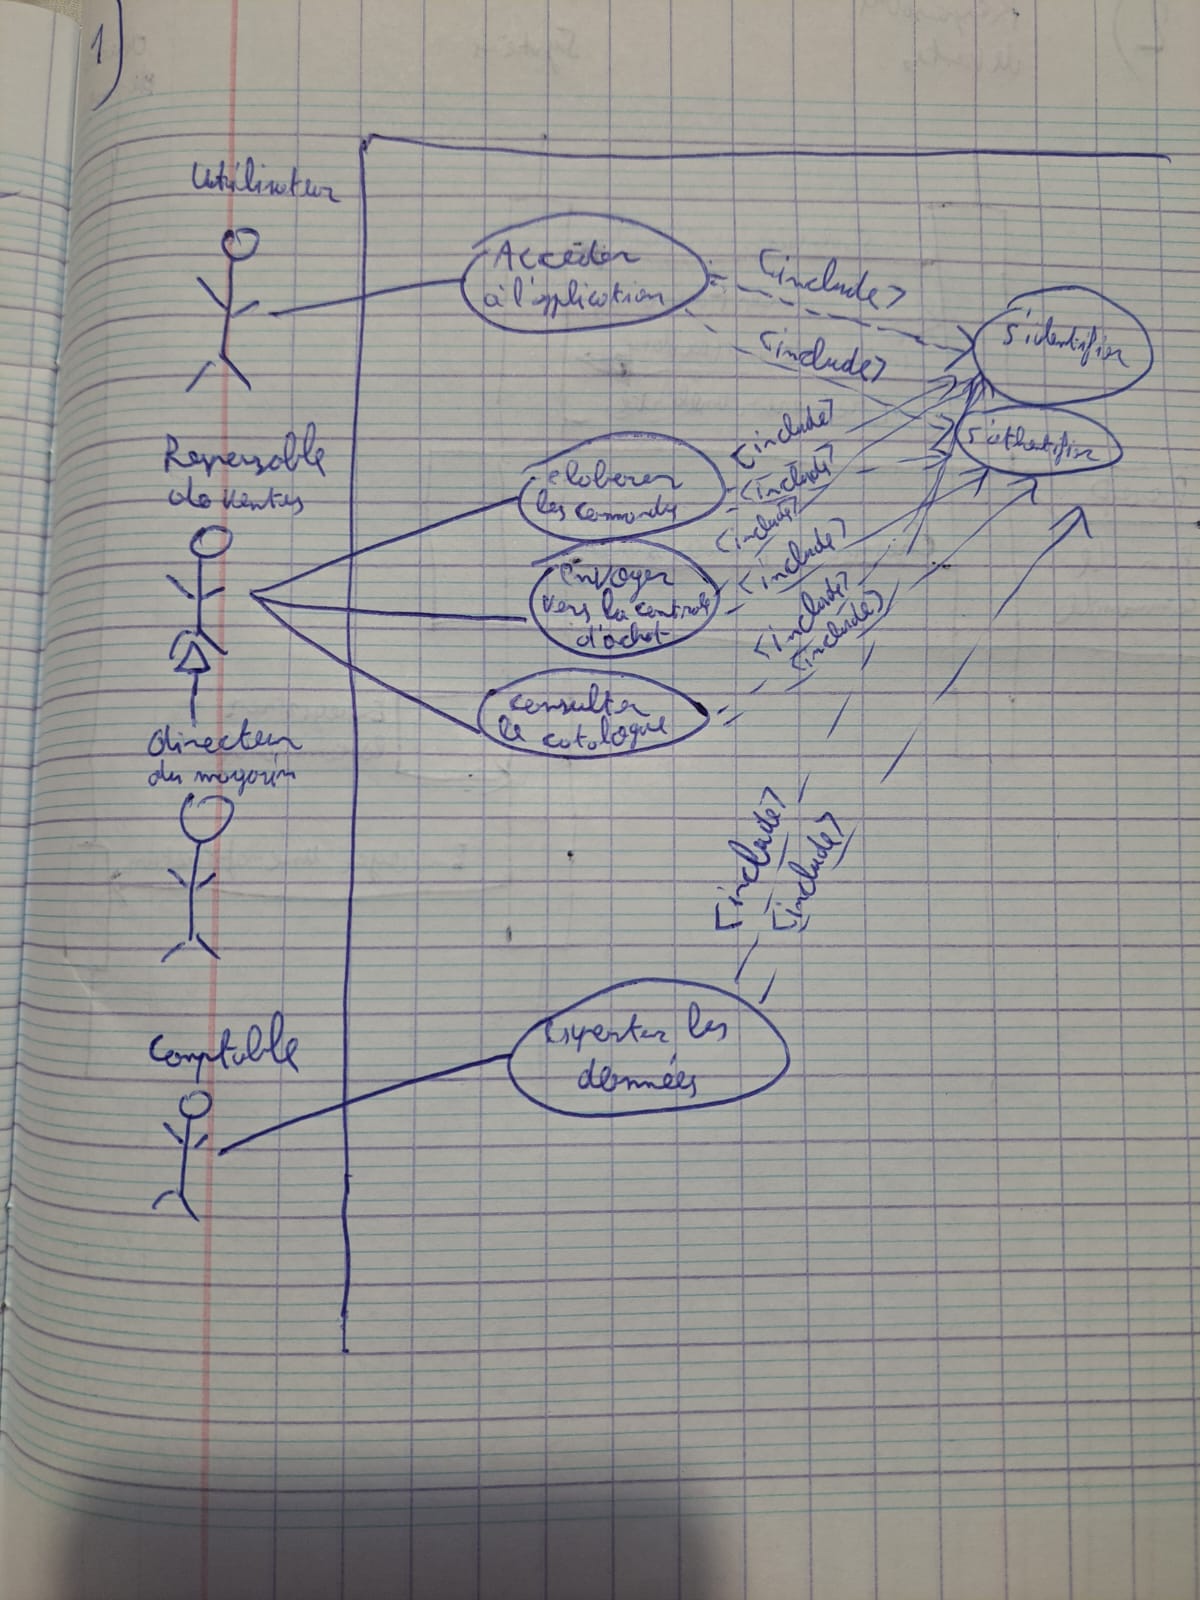 1)
Utilisateur
Accéder
à l'application
<include>
<include>
s'identifier
s'athentifier
Responsable
de ventes
eloborer
les commandes
<include>
<include>
<include>
<include>
envoyer
vers la centrale
d'achat
<include>
<include>
consulter
le catalogue
directeur
du magasin
<include>
<include>
Comptable
les
données